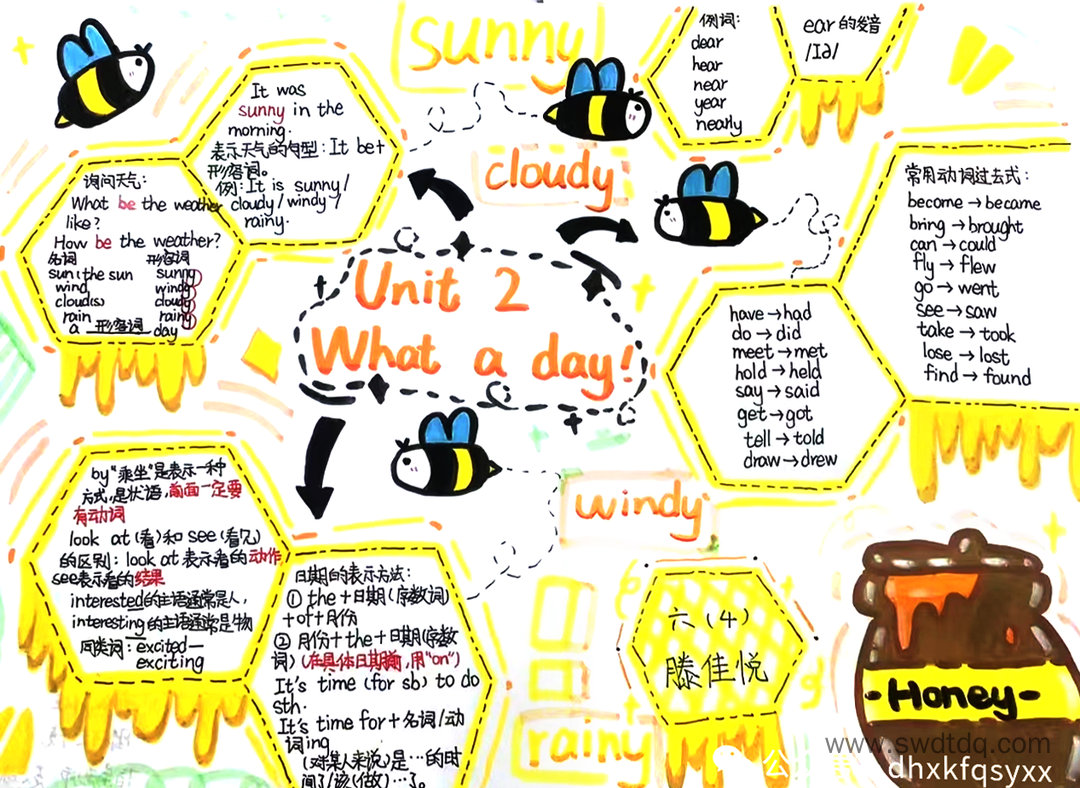 sunny
例词:
dear
hear
near
year
nearly
ear的发音
/Iə/
It was
sunny in the
morning.
表示天气的句型: It be+
形容词。
例: It is sunny/
cloudy/windy/
rainy.
询问天气:
What be the weather
like?
How be the weather?
名词 形容词
sun(the sun sunny
wind windy
cloud(s) cloudy
rain rainy
a 形容词 day
cloudy
Unit 2
What a day!
常用动词过去式:
become→became
bring→brought
can→could
fly→flew
go→went
see→saw
take→took
lose→lost
find→found
have→had
do→did
meet→met
hold→held
say→said
get→got
tell→told
draw→drew
windy
by“乘坐”是表示一种
方式,是状语,前面一定要
有动词
look at(看)和see(看见)
的区别: look at表示看的动作
see表示看的结果
interested的主语通常是人,
interesting的主语通常是物
同类词: excited—
exciting
日期的表示方法:
① the+日期(序数词)
+of+月份
② 月份+the+日期(序数
词)(在具体日期前,用“on”)
It's time (for sb) to do
sth.
It's time for+名词/动
词ing
(对某人来说)是…的时
间了/该(做)…了。
rainy
六(4)
滕佳悦
-Honey-
www.swdtdq.com
dhxkfqsyxx